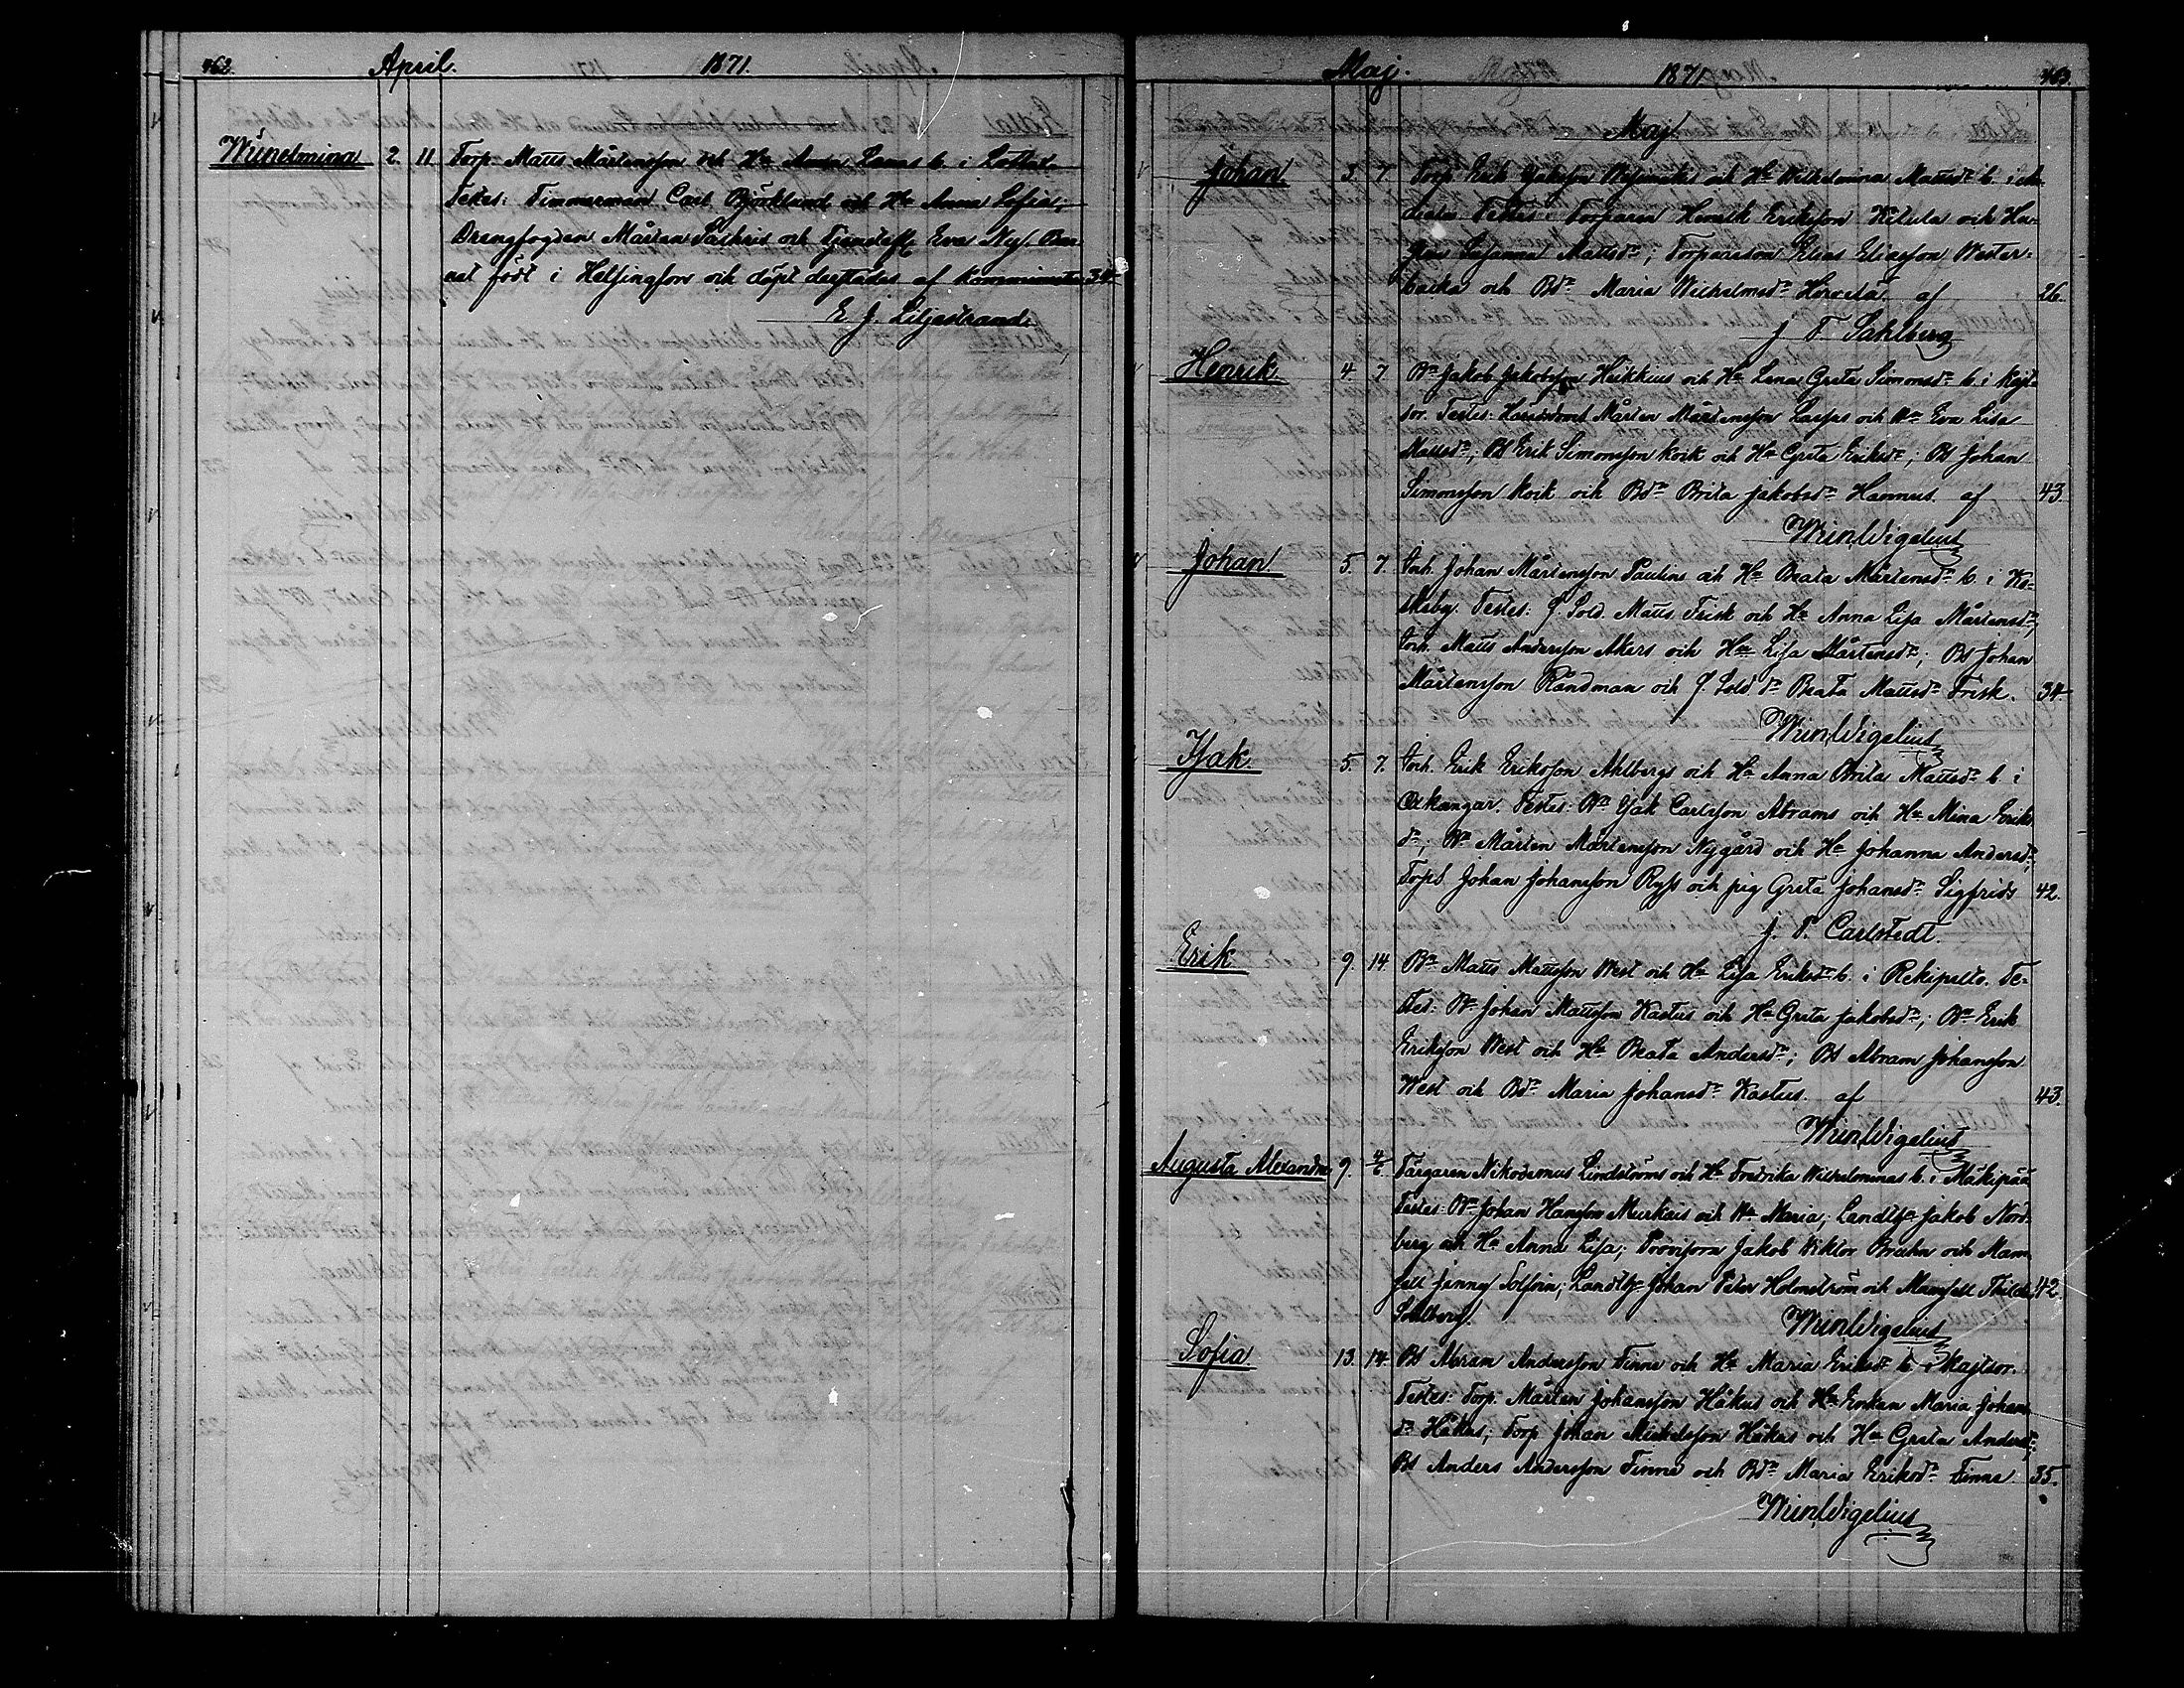 462. April. 1871.
Wilhelmina 2. 11 Torp. Matts Mårtensson och Hu Anna Lenas b. i
Testes: Timmerman Carl Björklund och Hu Anna Sofia;
Drengfogden Mårten och Eva Ny. Bar-
net född i Helsingfors och döpt derstädes af Kommin 34.
E. J. Liljestrand.
Maj. 1871. 463.
Maj
Johan 3. 7 Torp Erik och Hu Wilhelmina Mattsdr b. i
Testes: Torparen Henrik Eriksson och Hu-
Susanna Mattsdr; Elias Eliasson Wester-
backa och Bdr Maria Wilhelmsdr af 26.
J T. Sahlberg
Henrik 4. 7 Bn Jakob Jakobsson Heikkius och Hu Lena Greta Simonsdr b. i Kajt-
sor. Testes: Mårten Mårtensson och Hu Eva Lisa
Mattsdr; Bs Erik Simonsson Koik och Hu Greta Eriksdr; Bs Johan
Simonsson Koik och Bdr Brita Jakobsdr Hannus. af 43
Wigelius
Johan 5. 7. Inh. Johan Mårtensson Paulins och Hu Beata Mårtensdr b. i Ko-
skeby. Testes: f. Sold. Matts Frisk och Hu Anna Lisa Mårtensdr;
Inh. Matts Andersson Akers och Hu Lisa Mårtensdr; Bs Johan
Mårtensson Råndman och f. Sold dr Beata Mattsdr Frisk. 34.
Wigelius
Isak. 5. 7. Inh. Erik Eriksson Ahlbergs och Hu Anna Brita Mattsdr b. i
Oxkangar. Testes: Bn Isak Carlsson Abrams och Hu Mina Eriks
dr; Bn Mårten Mårtensson Nygård och Hu Johanna Andersdr;
Torps. Johan Johansson Ryss och pig Greta Johansdr Sigfrids 42.
J. P. Carlstedt.
Erik 9. 14. Bn Matts Mattsson West och Hu Lisa Eriksdr b. i Rekipelto. Te-
stes: Bn Johan Mattsson Kastus och Hu Greta Jakobsdr; Bn Erik
Eriksson West och Hu Beata Andersdr; Bs Abram Johansson
West och Bdr Maria Johansdr Kastus. af 43.
Wigelius
Augusta Alexandra 9. 4/6 Färgaren Nikodemus Lindströms och Hu Fredrika Wilhelminas b. i Mäkipää
Testes: Bn Johan Hansson Murkais och Hu Maria; Jakob Nord-
berg och Hu Anna Lisa; Provisorn Jakob Viktor Bruhn och Mam
sell Jenny; Johan Peter Holmström och Mamsell Thilda 42.
Sahlberg.
Wigelius
Sofia 13. 14. Bs Abram Andersson Finne och Hu Maria Eriksdr b. i Kajtsor.
Testes: Torp. Mårten Johansson Håkus och Enkan Maria Johans
dr Håkus; Torp Johan Mickelsson Håkus och Hu Greta Andersdr;
Bs Anders Andersson Finne och Bdr Maria Eriksdr Finne 35.
Wigelius